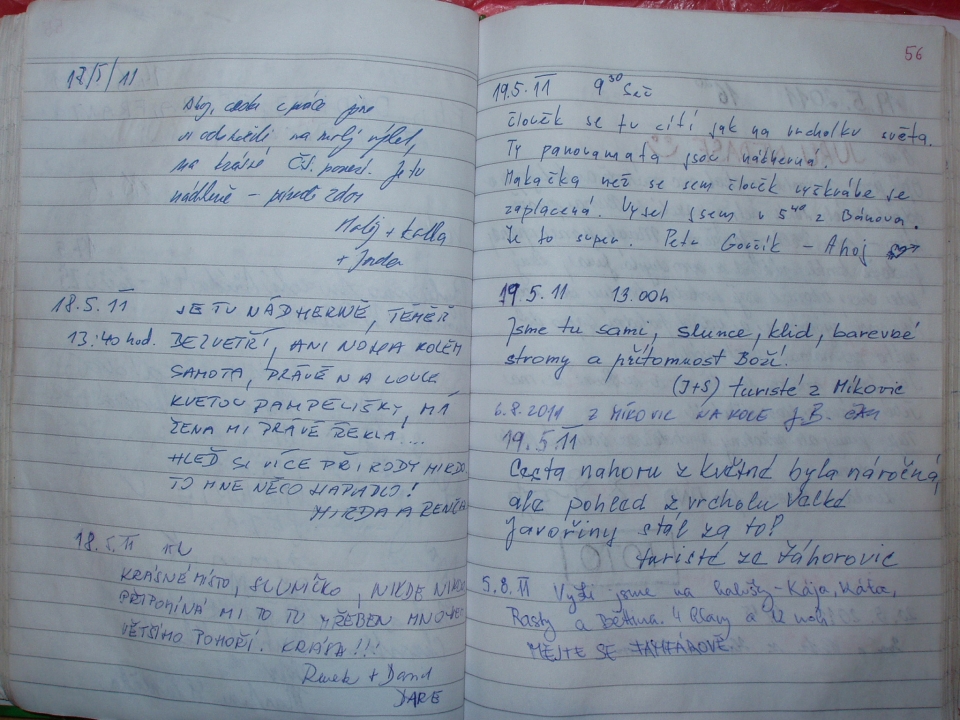 17/5/11
Ahoj, cestou z práce jsme
si odskočili na malý výlet,
na krásné ČS. pomezí. Je tu
nádherně – přírodě zdar
Matěj + Kadla
+ Jenda
18.5.11 JE TU NÁDHERNĚ, TÉMĚŘ
13:40 hod. BEZVĚTŘÍ, ANI NOHA KOLEM
SAMOTA, PRÁVĚ NA LOUCE
KVETOU PAMPELIŠKY, MÁ
ŽENA MI PRÁVĚ ŘEKLA!...
HLEĎ SI VÍCE PŘÍRODY MIRDO
TO MNE NĚCO NAPADLO!
MIRDA A RENČA
18.5.11
KRÁSNÉ MÍSTO, SLUNÍČKO, NIKDE NIKDO
PŘIPOMÍNÁ MI TO TU HŘEBEN MNOHEM
VĚTŠÍHO POHOŘÍ. KRÁSA!!!
Radek + David
56
19.5.11 9 30
Človék se tu cítí jak na vrcholku světa.
Ty panoramata jsou nádherná.
Makačka než se sem člověk vyškrábe se
zaplacená. Vyšel jsem v 5 40 z Bánova.
Je to super. Petr Gorčík – Ahoj
19.5.11 13.00h
Jsme tu sami, slunce, klid, barevné
stromy a přítomnost Boží.
(J+S) turisté z Míkovic
6.8.2011 z MÍKOVIC NA KOLE J.B.
19.5.11
Cesta nahoru z Květné byla náročná,
ale pohled z vrcholu Velké
Javořiny stál za to!
turisté ze Záhorovic
5.8.11 Vyšli jsme na halušky – Kája, Káťa,
Rasty a 4 hlavy a 12 noh
MĚJTE SE